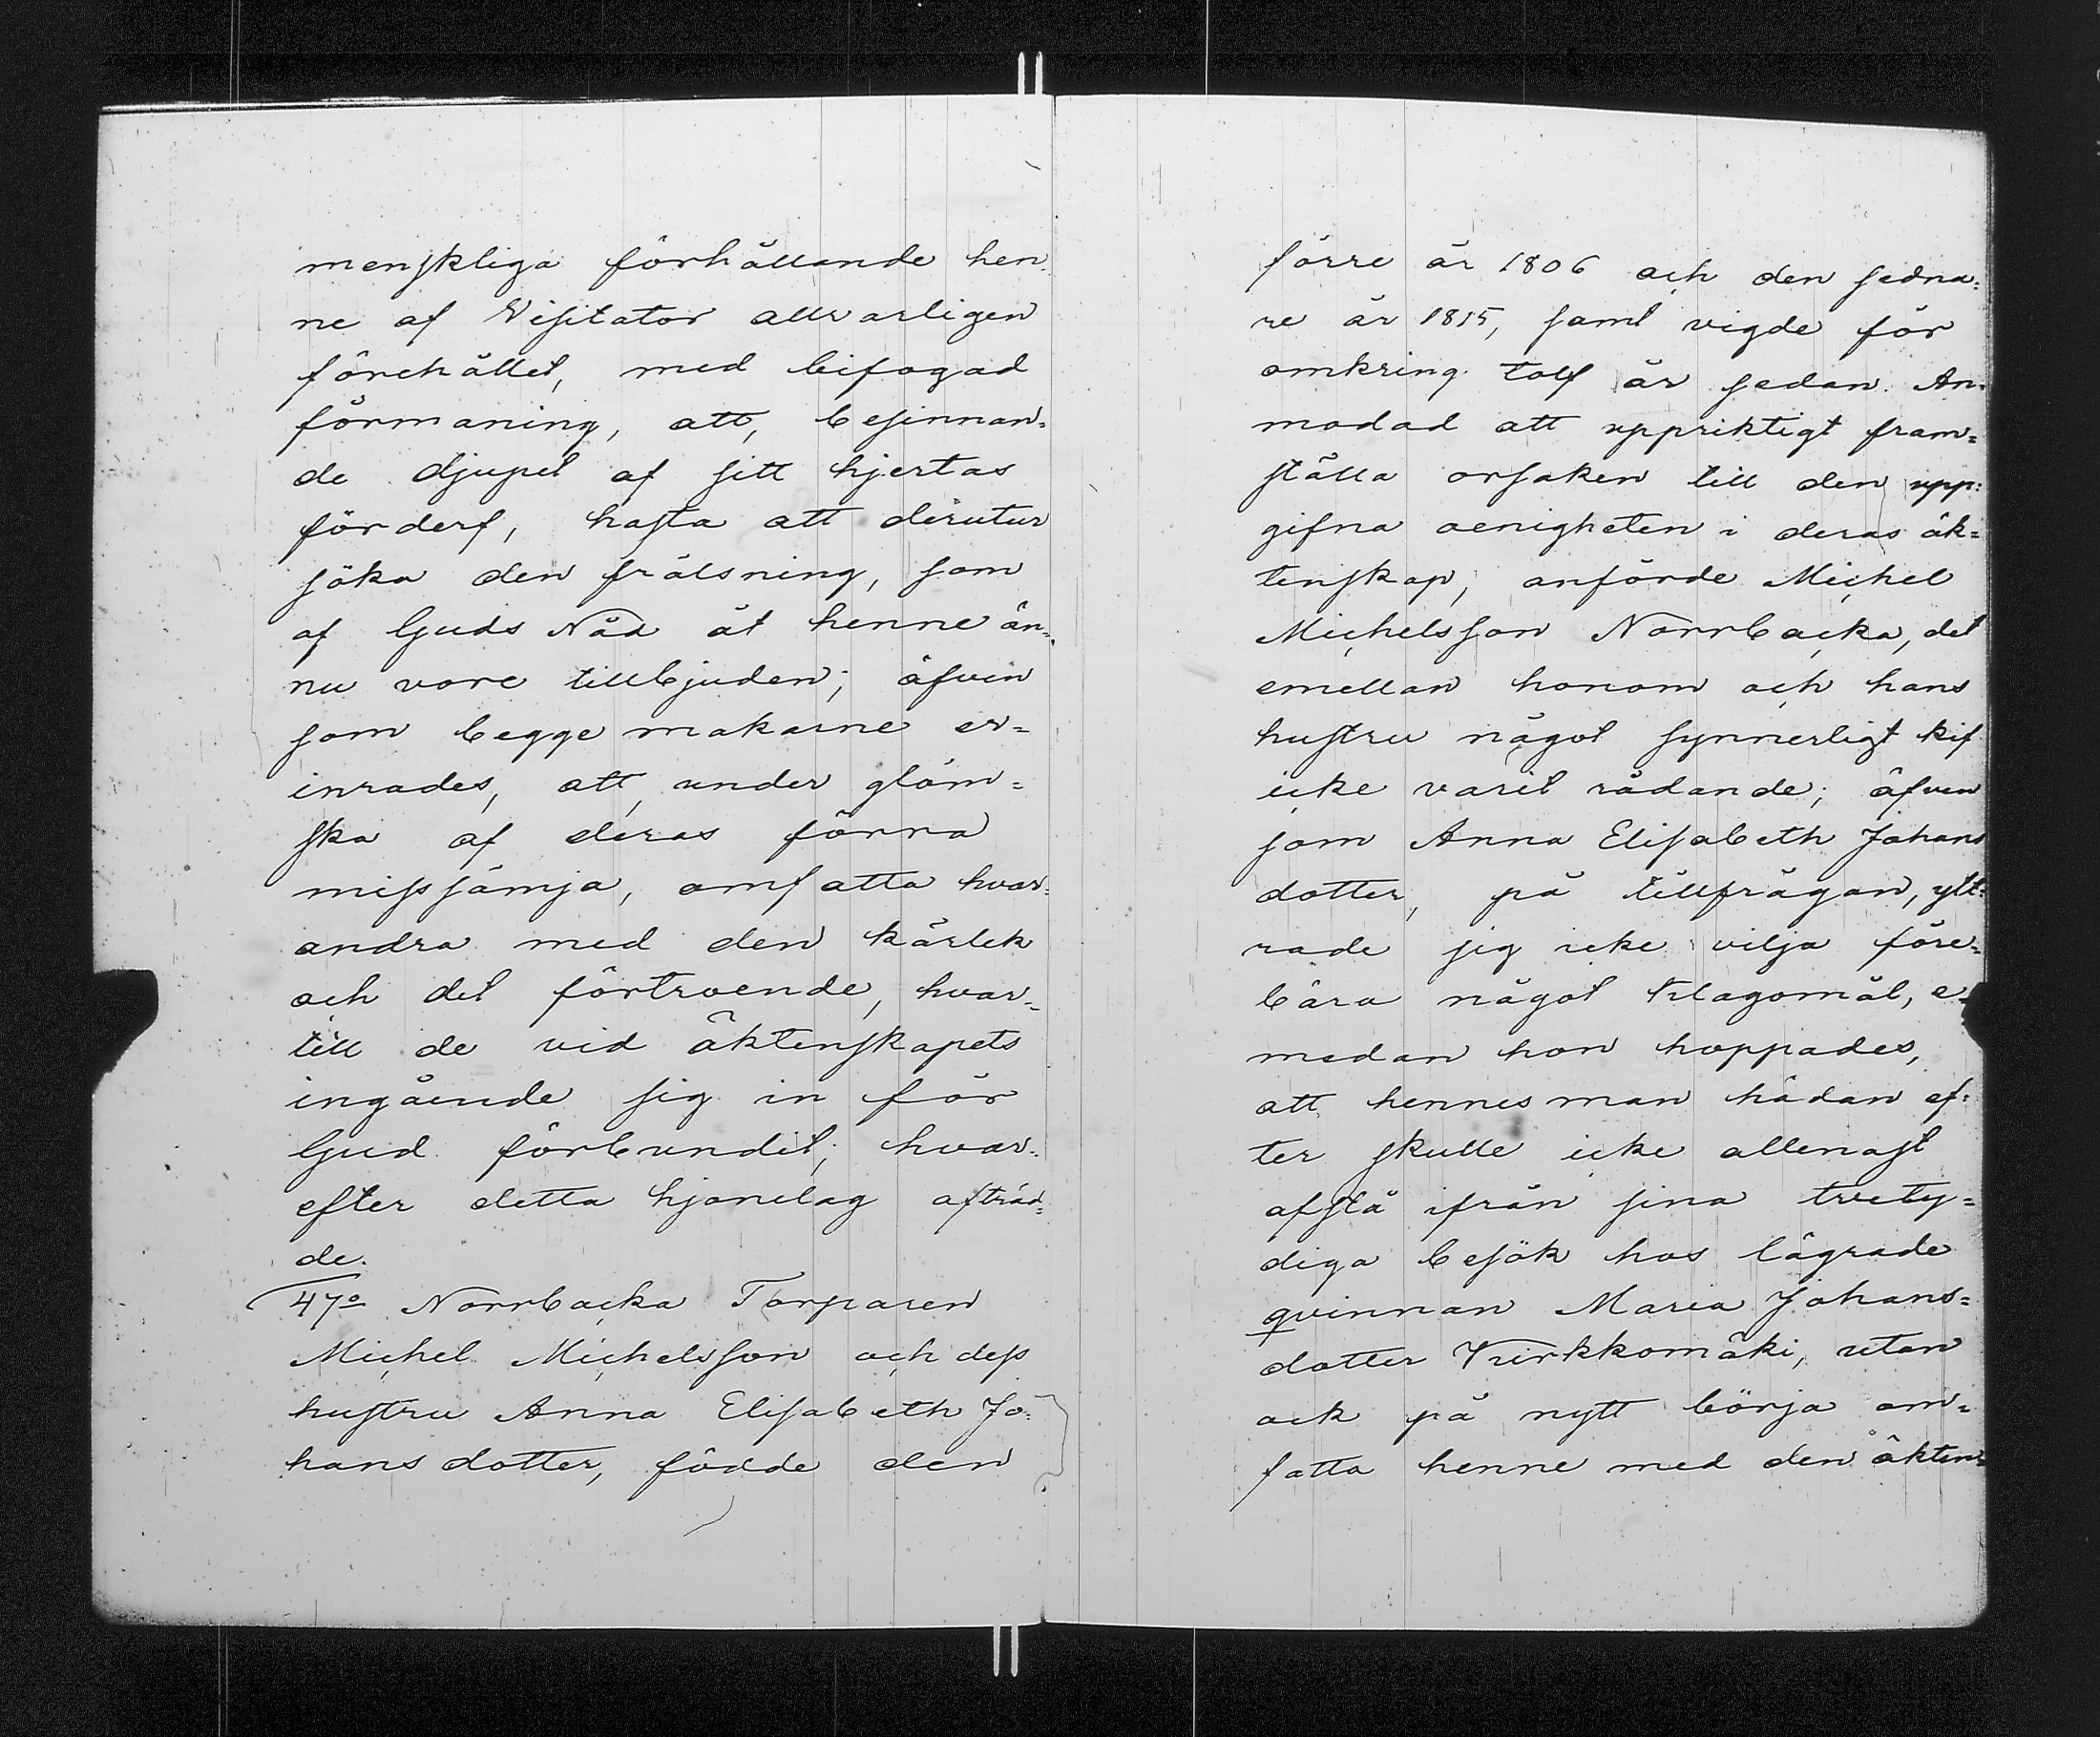 menskliga förhållande hen-
ne af Visitator allvarligen
förehållet, med bifogad
förmaning, att, besinnan=
de djupet af sitt hjertas
förderf, hasta att derutur
söka den frälsning, som
af Guds Nåd åt henne än=
nu vore tillbjuden; äfven
som begge makarne er=
inrades, att, under glöm=
ska af deras förra
missämja, omfatta hvar=
andra med den kärlek
och det förtroende, hvar=
till de vid äktenskapets
ingående sig in för
Gud förbundit; hvar-
efter detta hjonelag afträd=
de.
47o Norrbacka Torparen
Michel Michelsson och dess
hustru Anna Elisabeth Jo=
hansdotter, födde den
förre år 1806 och den sedna=
re år 1815, samt vigde för
omkring tolf år sedan. An-
modad att uppriktigt fram=
ställa orsaken till den upp=
gifna oenigheten i deras äk=
tenskap, anförde Michel
Michelsson Norrbacka, det
emellan honom och hans
hustru något synnerligt kif
icke varit rådande; äfven
som Anna Elisabeth Johans
dotter, på tillfrågan, ytt=
rade sig icke vilja före=
bära något klagomål, e=
medan hon hoppades,
att hennes man hädan ef=
ter skulle icke allenast
afstå ifrån sina tvety=
diga besök hos lägrade
qvinnan Maria Johans=
dotter Kirkkomäki, utan
ock på nytt börja om=
fatta henne med den äktens=